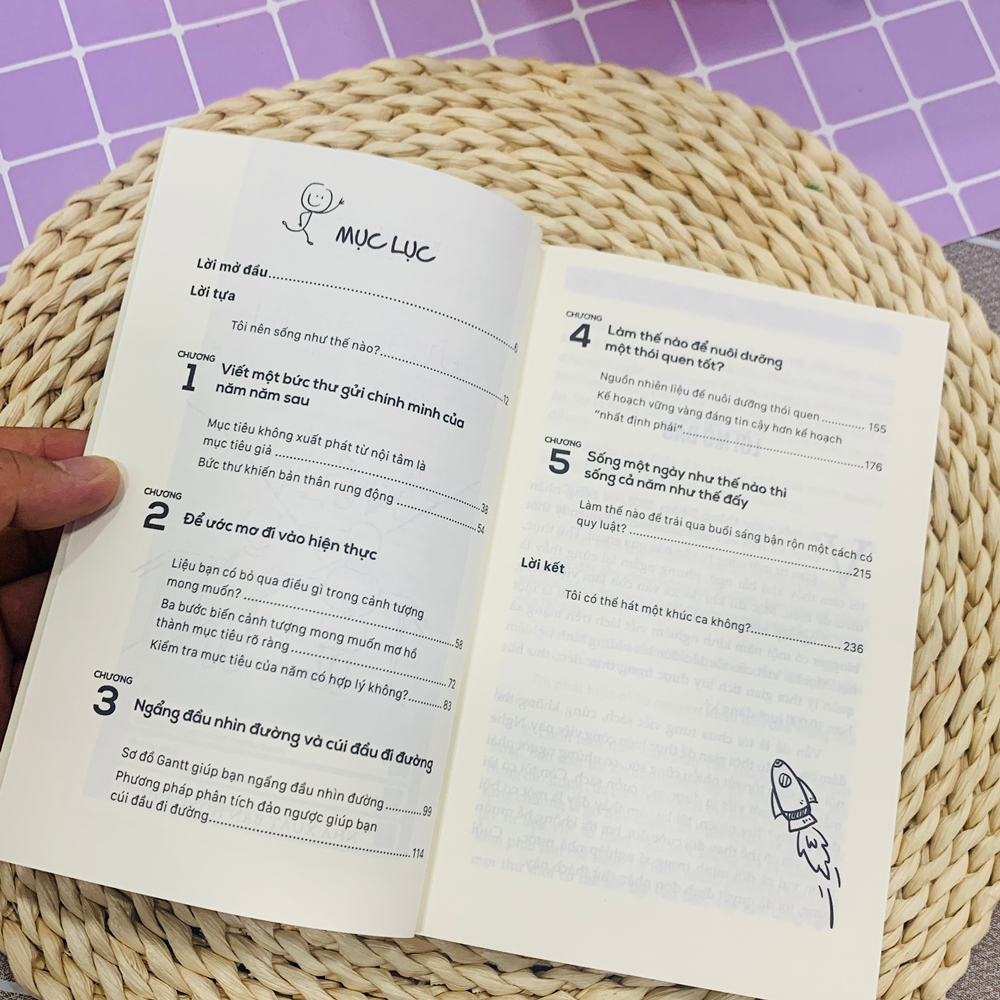 MỤC LỤC
Lời mở đầu........................6
Lời tựa
Tôi nên sống như thế nào?........................12
CHƯƠNG
1
Viết một bức thư gửi chính mình của
năm năm sau
Mục tiêu không xuất phát từ nội tâm là
mục tiêu giả........................38
Bức thư khiến bản thân rung động........................54
CHƯƠNG
2
Để ước mơ đi vào hiện thực
Liệu bạn có bỏ qua điều gì trong cảnh tượng
mong muốn?........................58
Ba bước biến cảnh tượng mong muốn mơ hồ
thành mục tiêu rõ ràng........................72
Kiểm tra mục tiêu của năm có hợp lý không?..........83
CHƯƠNG
3
Ngẩng đầu nhìn đường và cúi đầu đi đường
Sơ đồ Gantt giúp bạn ngẩng đầu nhìn đường..........99
Phương pháp phân tích đảo ngược giúp bạn
cúi đầu đi đường........................114
CHƯƠNG
4
Làm thế nào để nuôi dưỡng
một thói quen tốt?
Nguồn nhiên liệu để nuôi dưỡng thói quen...............155
Kế hoạch vững vàng đáng tin cậy hơn kế hoạch
“nhất định phải”........................176
CHƯƠNG
5
Sống một ngày như thế nào thì
sống cả năm như thế đấy
Làm thế nào để trải qua buổi sáng bận rộn một cách có
quy luật?........................215
Lời kết
Tôi có thể hát một khúc ca không?........................236